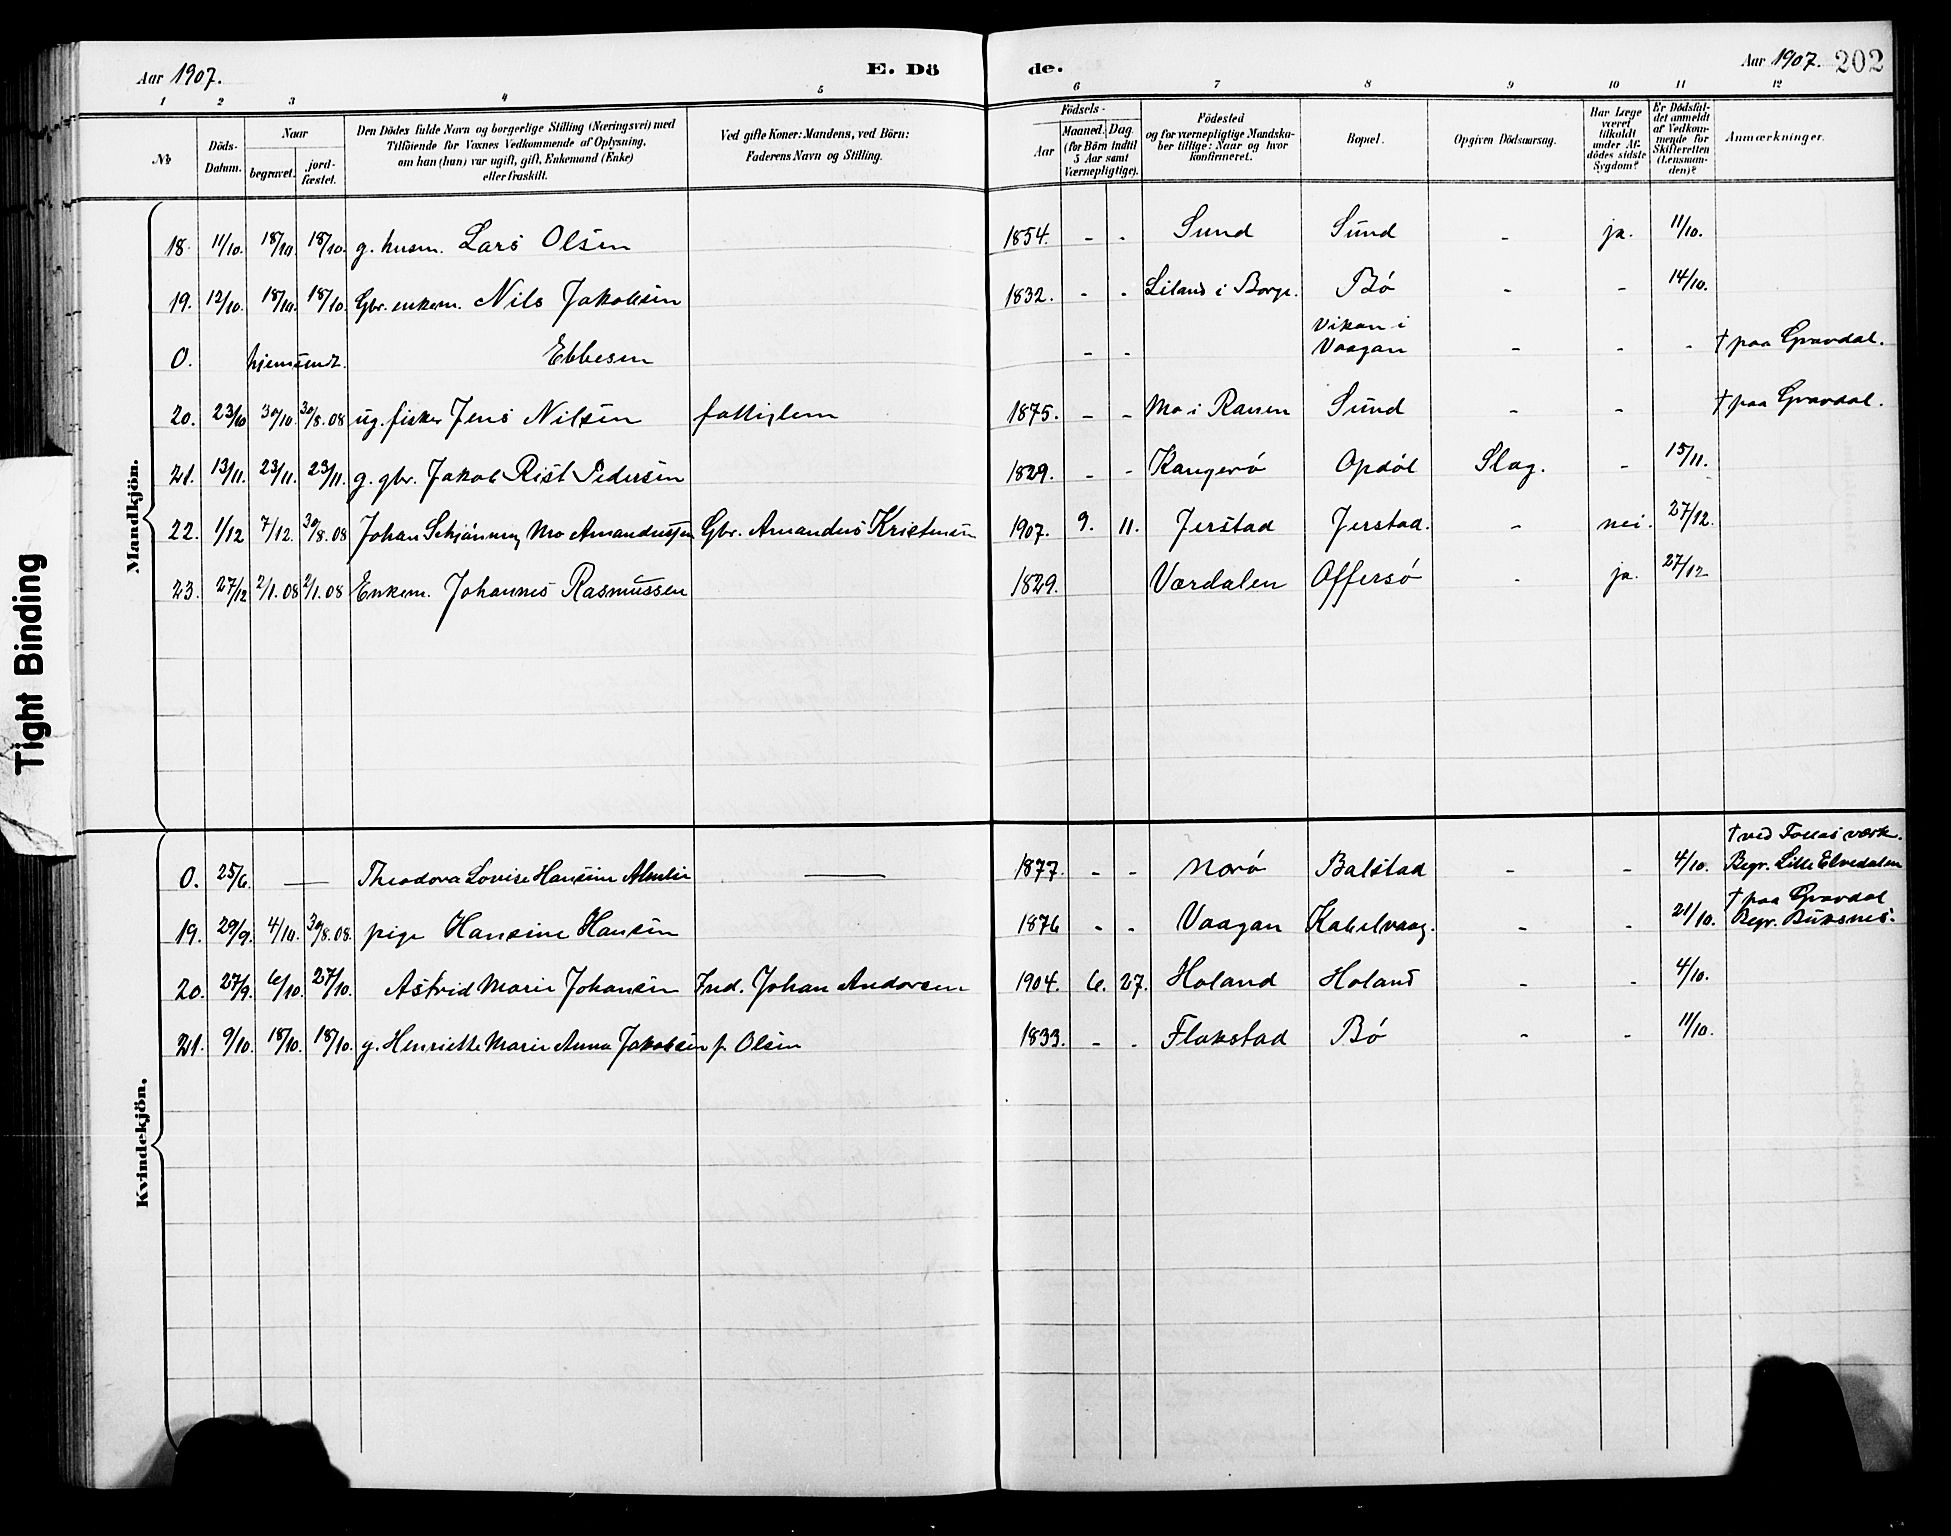 Aar 1907. E. Dö de. Aar 1907. 202
1 2 3 4 5 6 7 8 9 10 11 12
No Döds-Datum. Naar begravet. jord-fæstet. Den Dödes fulde Navn og borgerlige Stilling (Næringsvei) med Tilföiende for Voxnes Vedkommende af Oplysning, om han (hun) var ugift, gift, Enkemand (Enke) eller fraskilt. Ved gifte Koner: Mandens, ved Börn: Faderens Navn og Stilling. Födsels- Aar Maaned. Dag. (for Börn indtil 5 Aar samt Værnepligtige). Födested og for værnepligtige Mandskaber tillige: Naar og hvor konfirmeret. Bopæl. Opgiven Dödsaarsag. Har Læge været tilkaldt under Afdödes sidste Sygdom? Er Dödsfaldet anmeldt af Vedkommende for Skifteretten (Lensmanden)? Anmærkninger.
Mandkjön.
18. 11/10. 18/10. 18/10. g. husm. Lars Olsen 1854. - - Sund Sund - ja. 11/10.
19. 12/10. 18/10. 18/10. Gbr. enkem. Nils Jakobsen 1832. - - Liland i Borge. Bö - - 14/10.
0. hjemsendt. Ebbesen - - Vikan i Vaagan - - - † paa Gravdal.
20. 23/10 30/10. 30/8.08 ug. fisker Jens Nilsen fattiglem 1875. - - Mo i Ranen Sund - - † paa Gravdal.
21. 13/11. 23/11. 23/11. g. gbr. Jakob Rist Pedersen 1829. - - Kangerö Opdöl Slag. - 15/11.
22. 1/12 7/12. 30/8.08 Johan Schjönning Mo Amandussen Gbr. Amandus Kristensen 1907. 9. 11. Jerstad Jerstad. - nei. 27/12.
23. 27/12 2/1.08 2/1.08 Enkem. Johannes Rasmussen 1829. Værdalen Offersö - ja. 27/12
Kvindekjön.
0. 25/6. — Theodora Lovise Hansine Almlie — 1877. - - Morö Balstad - - 4/10. † ved Fossas værk. Begr. Lille Elvedalen
19. 29/9. 4/10. 30/8.08. pige Hansine Hansen 1876 - - Vaagan Kabelvaag. - - 21/10. † paa Gravdal Begr. Buksnes.
20. 27/9. 6/10. 27/10. Astrid Marie Johansen Ind. Johan Andorsen 1904. 6. 27. Holand Holand - - 4/10.
21. 9/10. 18/10. 18/10. g. Henriette Marie Anna Jakobsen f. Olsen 1833. - - Flakstad Bö - - 11/10.
Tight Binding